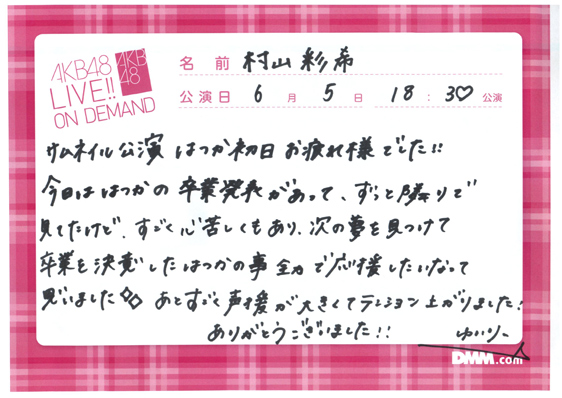 AKB48
LIVE!!
ON DEMAND
AKB
48
名前 村山彩希
公演日 6月5日 18:30公演
サムネイル公演 はつか初日 お疲れ様でした!!
今日ははつかの卒業発表があって、ずっと隣りで
見てたけど、すごく心苦しくもあり、次の夢を見つけて
卒業を決意したはつかの事全力で応援したいなって
思いました◇◇ あとすごく声援が大きくてテンション上がりました!
ありがとうございました!! ゆいりー
DMM.com